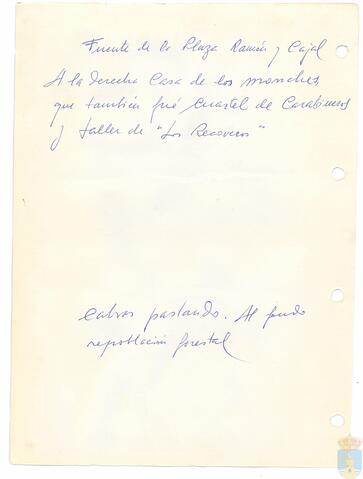 Fuente de la Plaza Ramón y Cajal
A la derecha Casa de los monches,
que también fué cuartel de Carabineros
y taller de "Los Recoveros"
Cabras pastando. Al fondo
repoblación forestal